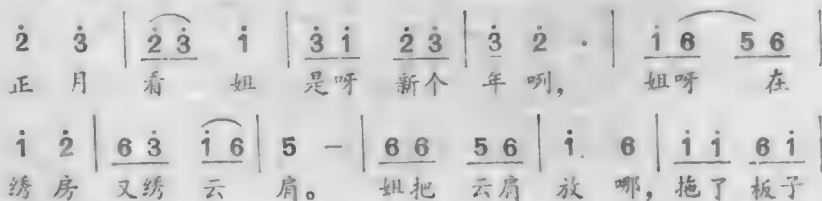 2̇ 3̇ | 2̇ 3̇ 1̇ | 3̇ 1̇ 2̇ 3̇ | 3̇ 2̇ · | 1̇ 6 5 6 |
正 月 看 姐 是呀 新个 年 咧， 姐呀 在
1̇ 2̇ | 6 3̇ 1̇ 6 | 5 － | 6 6 5 6 | 1̇. 6 | 1̇ 1̇ 6 1̇ |
绣 房 又绣 云 肩。 姐把 云肩 放 哪， 拖了 板子